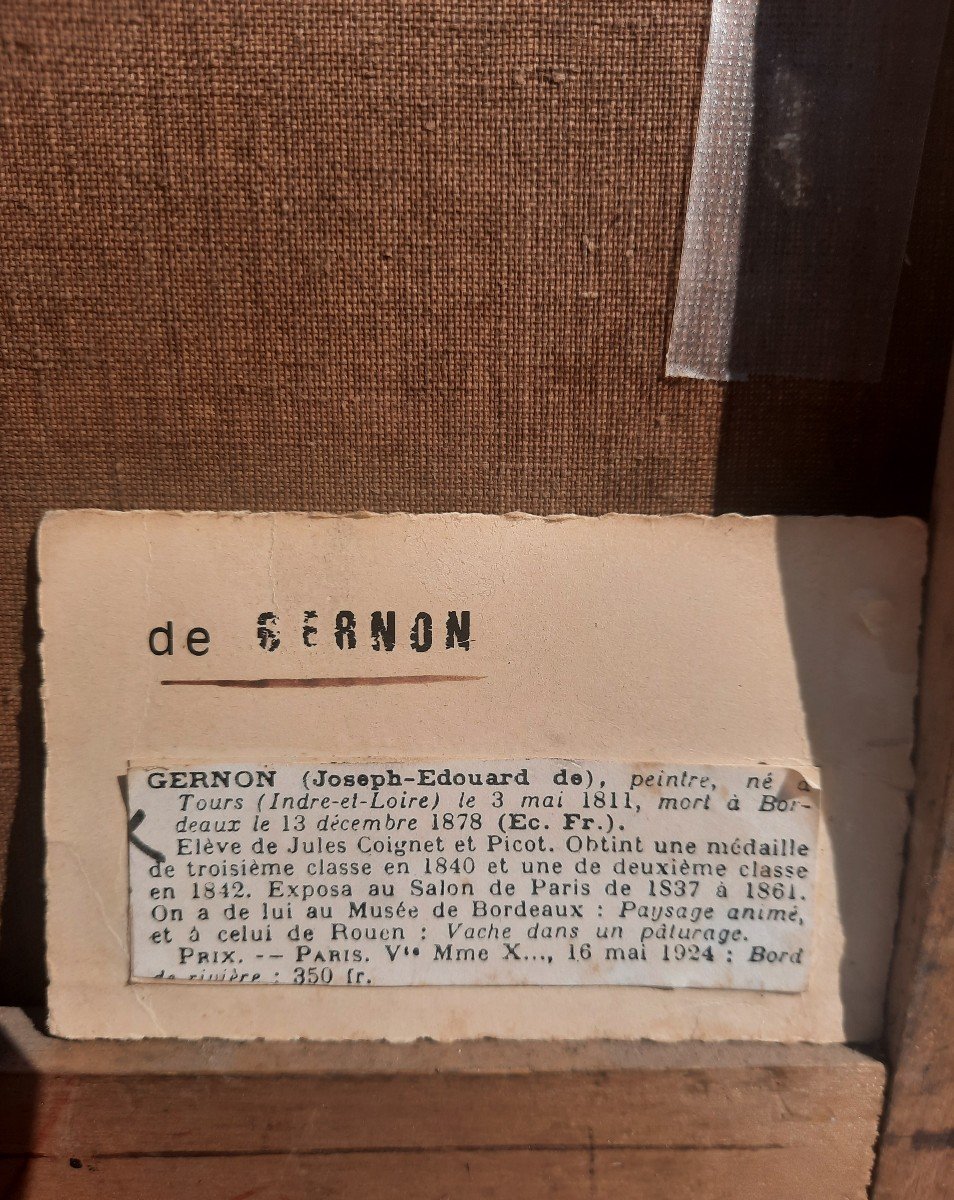 de GERNON
GERNON (Joseph-Edouard de), peintre, né à
Tours (Indre-et-Loire) le 3 mai 1811, mort à Bor-
deaux le 13 décembre 1878 (Ec. Fr.).
Elève de Jules Coignet et Picot. Obtint une médaille
de troisième classe en 1840 et une de deuxième classe
en 1842. Exposa au Salon de Paris de 1837 à 1861.
On a de lui au Musée de Bordeaux : Paysage animé,
et à celui de Rouen : Vache dans un pâturage.
PRIX. -- PARIS. Vte Mme X..., 16 mai 1924 : Bord
de rivière : 350 fr.